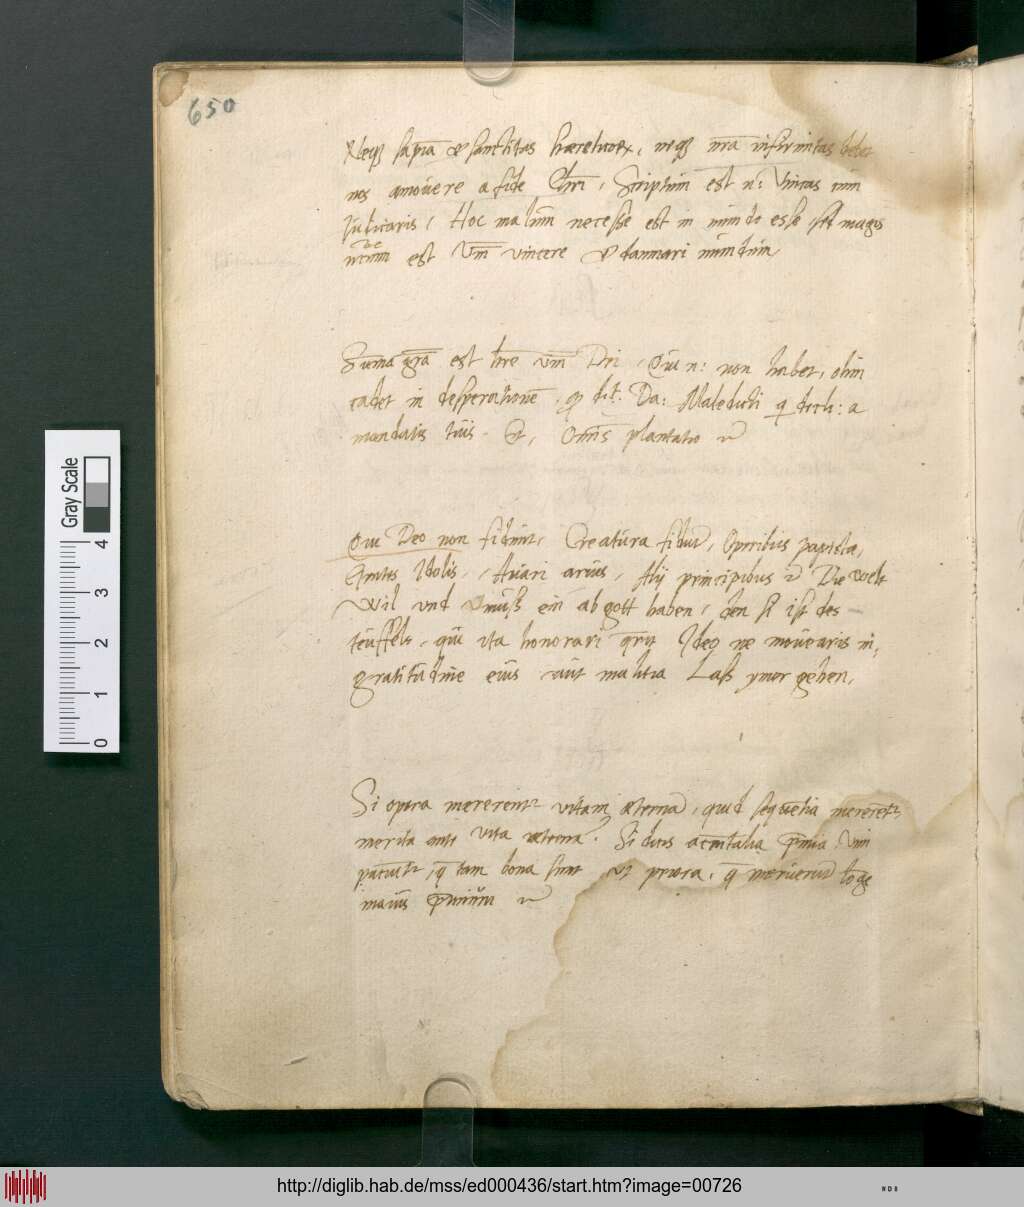 650
Neq₃ sapīa & sanctitas haereticorꝝ, neq₃ nr̄a infirmitas debet
nos amovere a fide Chri, Scriptum est n: Vincas cum
Iudicaris, Hoc malum necesse est in mundo esse, sed magis
est Vm̄ vincere & damnari mundum
Suma gr̄a est hr̄e vm̄ Dei, Qui n: non habet, olim
cadet in desperationē, dit: Da: Maledicti q decli: a
mandatis tuis. Et, Omis plantatio
Qui Deo non fidunt, Creatura fidūt, Operibus papista,
Gentes Idolis, Avari arius, Alij principibus Die welt
Wil vnd mus ein abgott haben, den si ist des
teuffels, qui ita honorari Ideo ne movearis in,
gratitudine eius aut malitia Lass ymer gehen,
Si opera mererentr vitam aeternā, quid sequentia mererētr
merita ante vita aeterna? Si dicis accn̄talia p̄mia. Vnū
q̄ tam bona sunt ut priora, q̄ meruerūt lōge
maius p̄miūm
Gray Scale
0 1 2 3 4
http://diglib.hab.de/mss/ed000436/start.htm?image=00726